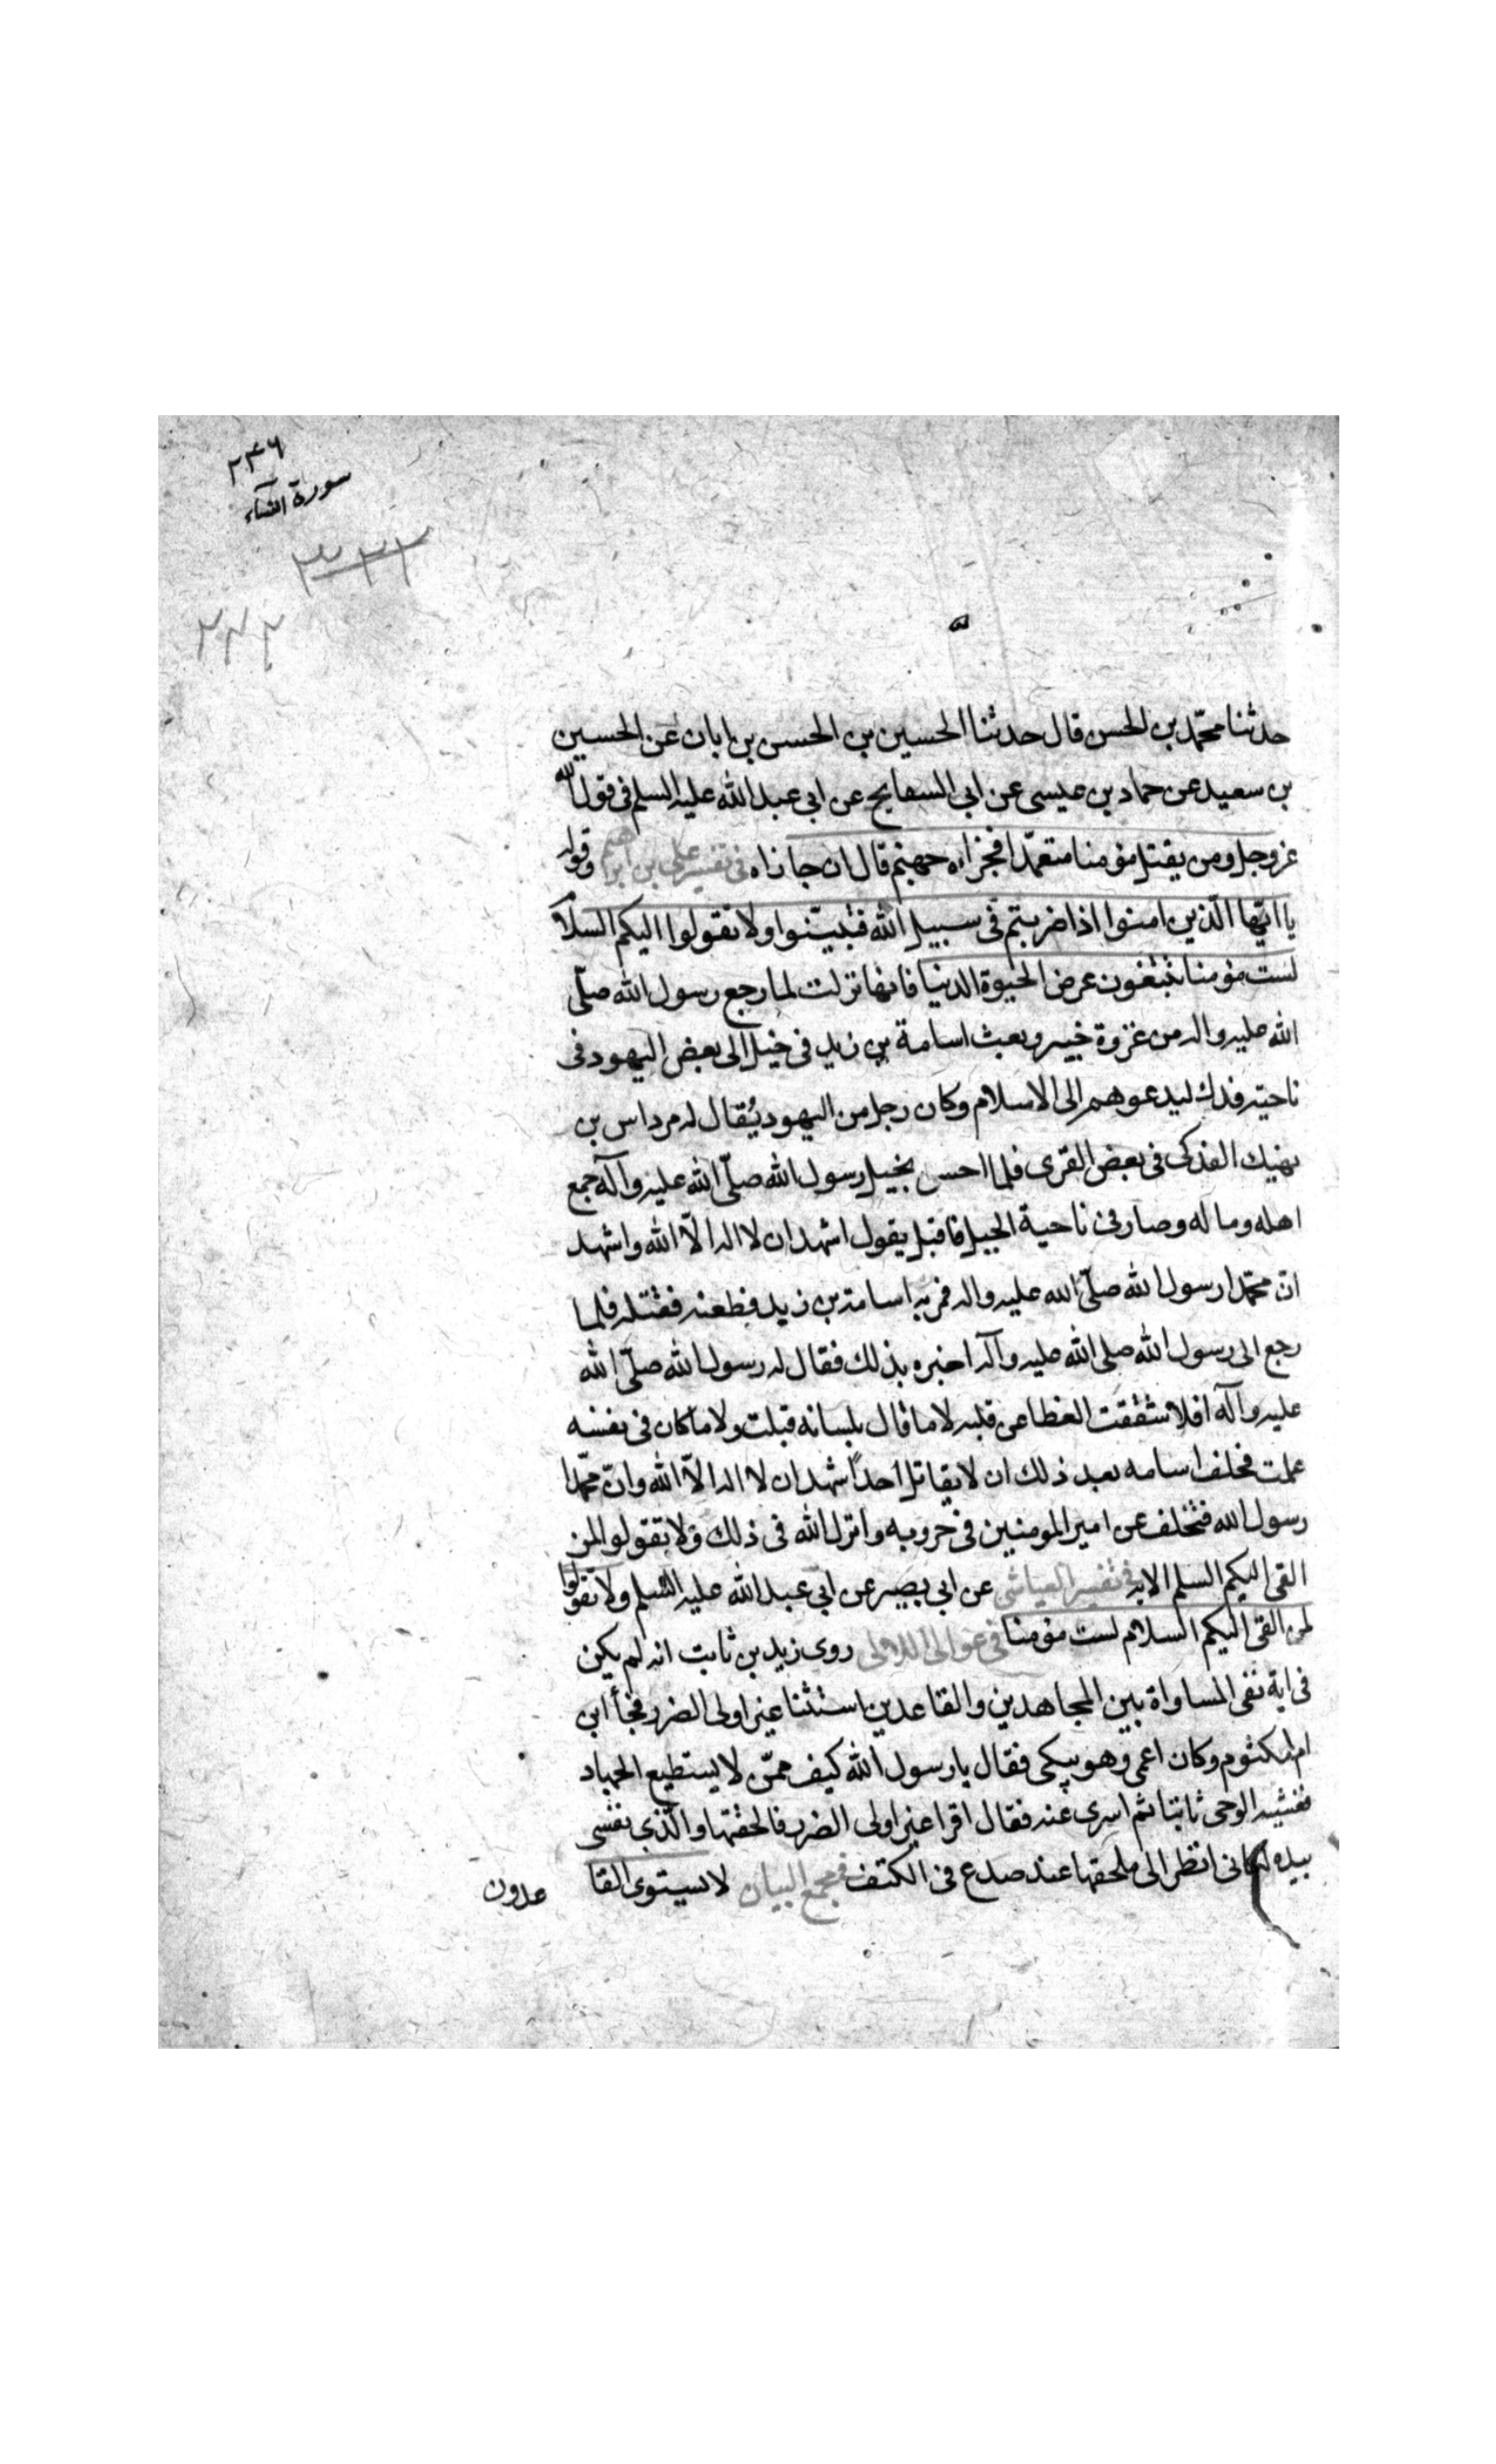 ٢٤٦
سورة النساء
٣٢٢
حدثنا محمّد بن الحسن قال حدثنا الحسين بن الحسن بن ابان عن الحسين
بن سعيد عن حماد بن عيسى عن ابى السفايح عن ابى عبد الله عليه السلم فى قول الله
عزوجل ومن يقتل مؤمنا متعمّدا فجزاؤه جهنم قال ان جازاه فى تفسير على بن ابراهيم وقوله
يا ايّها الّذين امنوا اذا ضربتم فى سبيل الله فتبيّنوا ولا تقولوا اليكم السلام
لست مؤمنا تبتغون عرض الحيوة الدنيا فانها نزلت لما رجع رسول الله صلّى
الله عليه واله من غزوة خيبر وبعث اسامة بن زيد فى خيل الى بعض اليهود فى
ناحية فدك ليدعوهم الى الاسلام وكان رجل من اليهود يُقال له مرداس بن
نهيك الفدكى فى بعض القرى فلما احس بخيل رسول الله صلّى الله عليه وآله جمع
اهله وماله وصار فى ناحية الجبل فاقبل يقول اشهد ان لا اله الاّ الله واشهد
انّ محمّدا رسول الله صلّى الله عليه واله فمر به اسامة بن زيد فطعنه فقتله فلما
رجع الى رسول الله صلى الله عليه وآله اخبره بذلك فقال له رسول الله صلّى الله
عليه وآله افلا شققت الغطا عن قلبه لا ما قال بلسانه قبلت ولا ما كان فى نفسه
علمت فحلف اسامه بعد ذلك ان لا يقاتل احداً شهد ان لا اله الاّ الله وانّ محمّدا
رسول الله فتخلف عن امير المومنين فى حروبه وانزل الله فى ذلك ولا تقولوا لمن
القى اليكم السلم الايه فى تفسير العياشى عن ابى بصير عن ابى عبد الله عليه السّلم ولا تقولوا
لمن القى اليكم السلام لست مؤمنا فى عوالى اللالى روى زيد بن ثابت انه لم يكن
فى اية نفى المساواة بين المجاهدين والقاعدين استثنا غير اولى الضرر فجأ ابن
ام مكتوم وكان اعمى وهو يبكى فقال يا رسول الله كيف ممّن لا يستطيع الجهاد
فغشيه الوحى ثانيا ثم اسرى عنه فقال اقرا غير اولى الضرر فالحقتها والّذى نفسى
بيده لكانى انظر الى ملحقها عند صدع فى الكتف فى مجمع البيان لا يستوى القا
عدون